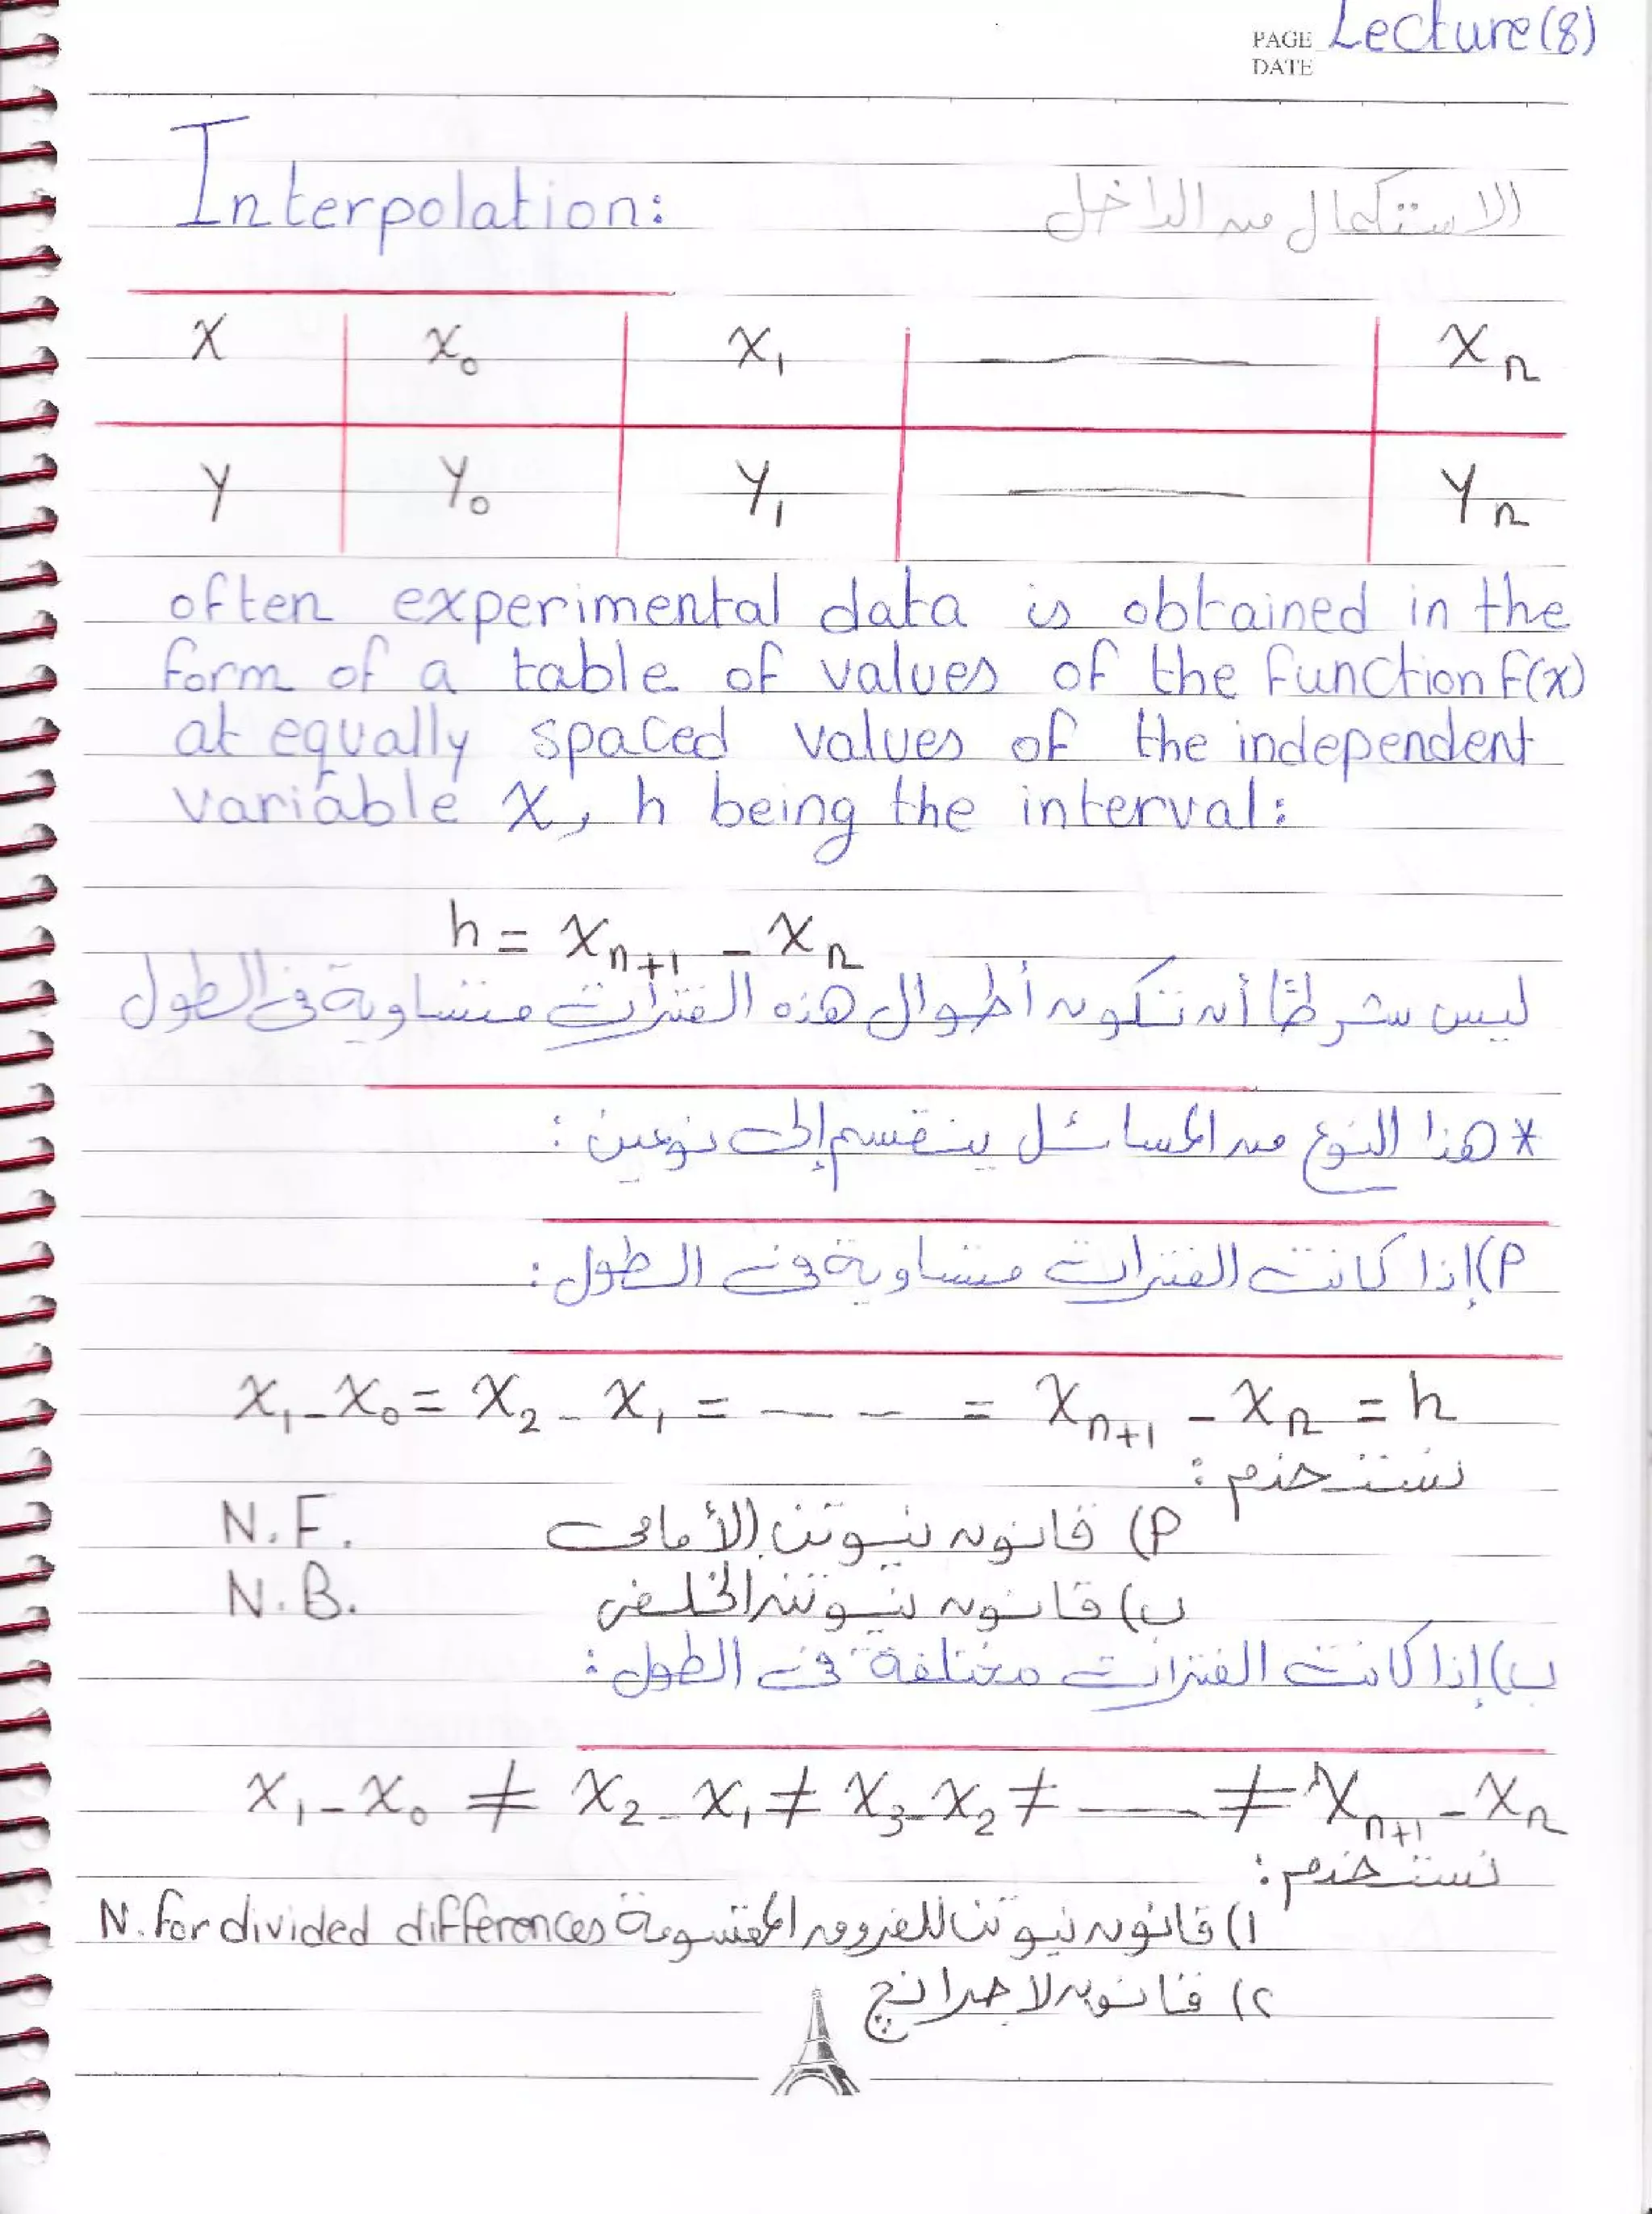 PAGE Lecture (8)
DATE
Interpolation: الاستكمال من الداخل
x x₀ x₁ ——— xₙ
y y₀ y₁ ——— yₙ
often experimental data is obtained in the
form of a table of values of the function f(x)
at equally spaced values of the independent
variable x, h being the interval:
h = xₙ₊₁ - xₙ
ليس شرطًا أن تكون أطوال هذه الفترات متساوية في الطول
* هذا النوع من المسائل ينقسم إلى نوعين :
أ) إذا كانت الفترات متساوية في الطول :
x₁ - x₀ = x₂ - x₁ = — — — = xₙ₊₁ - xₙ = h
نستخدم :
أ) قانون نيوتن الأمامي N.F.
ب) قانون نيوتن الخلفي N.B.
ب) إذا كانت الفترات مختلفة في الطول :
x₁ - x₀ ≠ x₂ - x₁ ≠ x₃ - x₂ ≠ ——— ≠ xₙ₊₁ - xₙ
نستخدم :
١) قانون نيوتن للفروق المقسومة N. for divided differences
٢) قانون لاجرانج